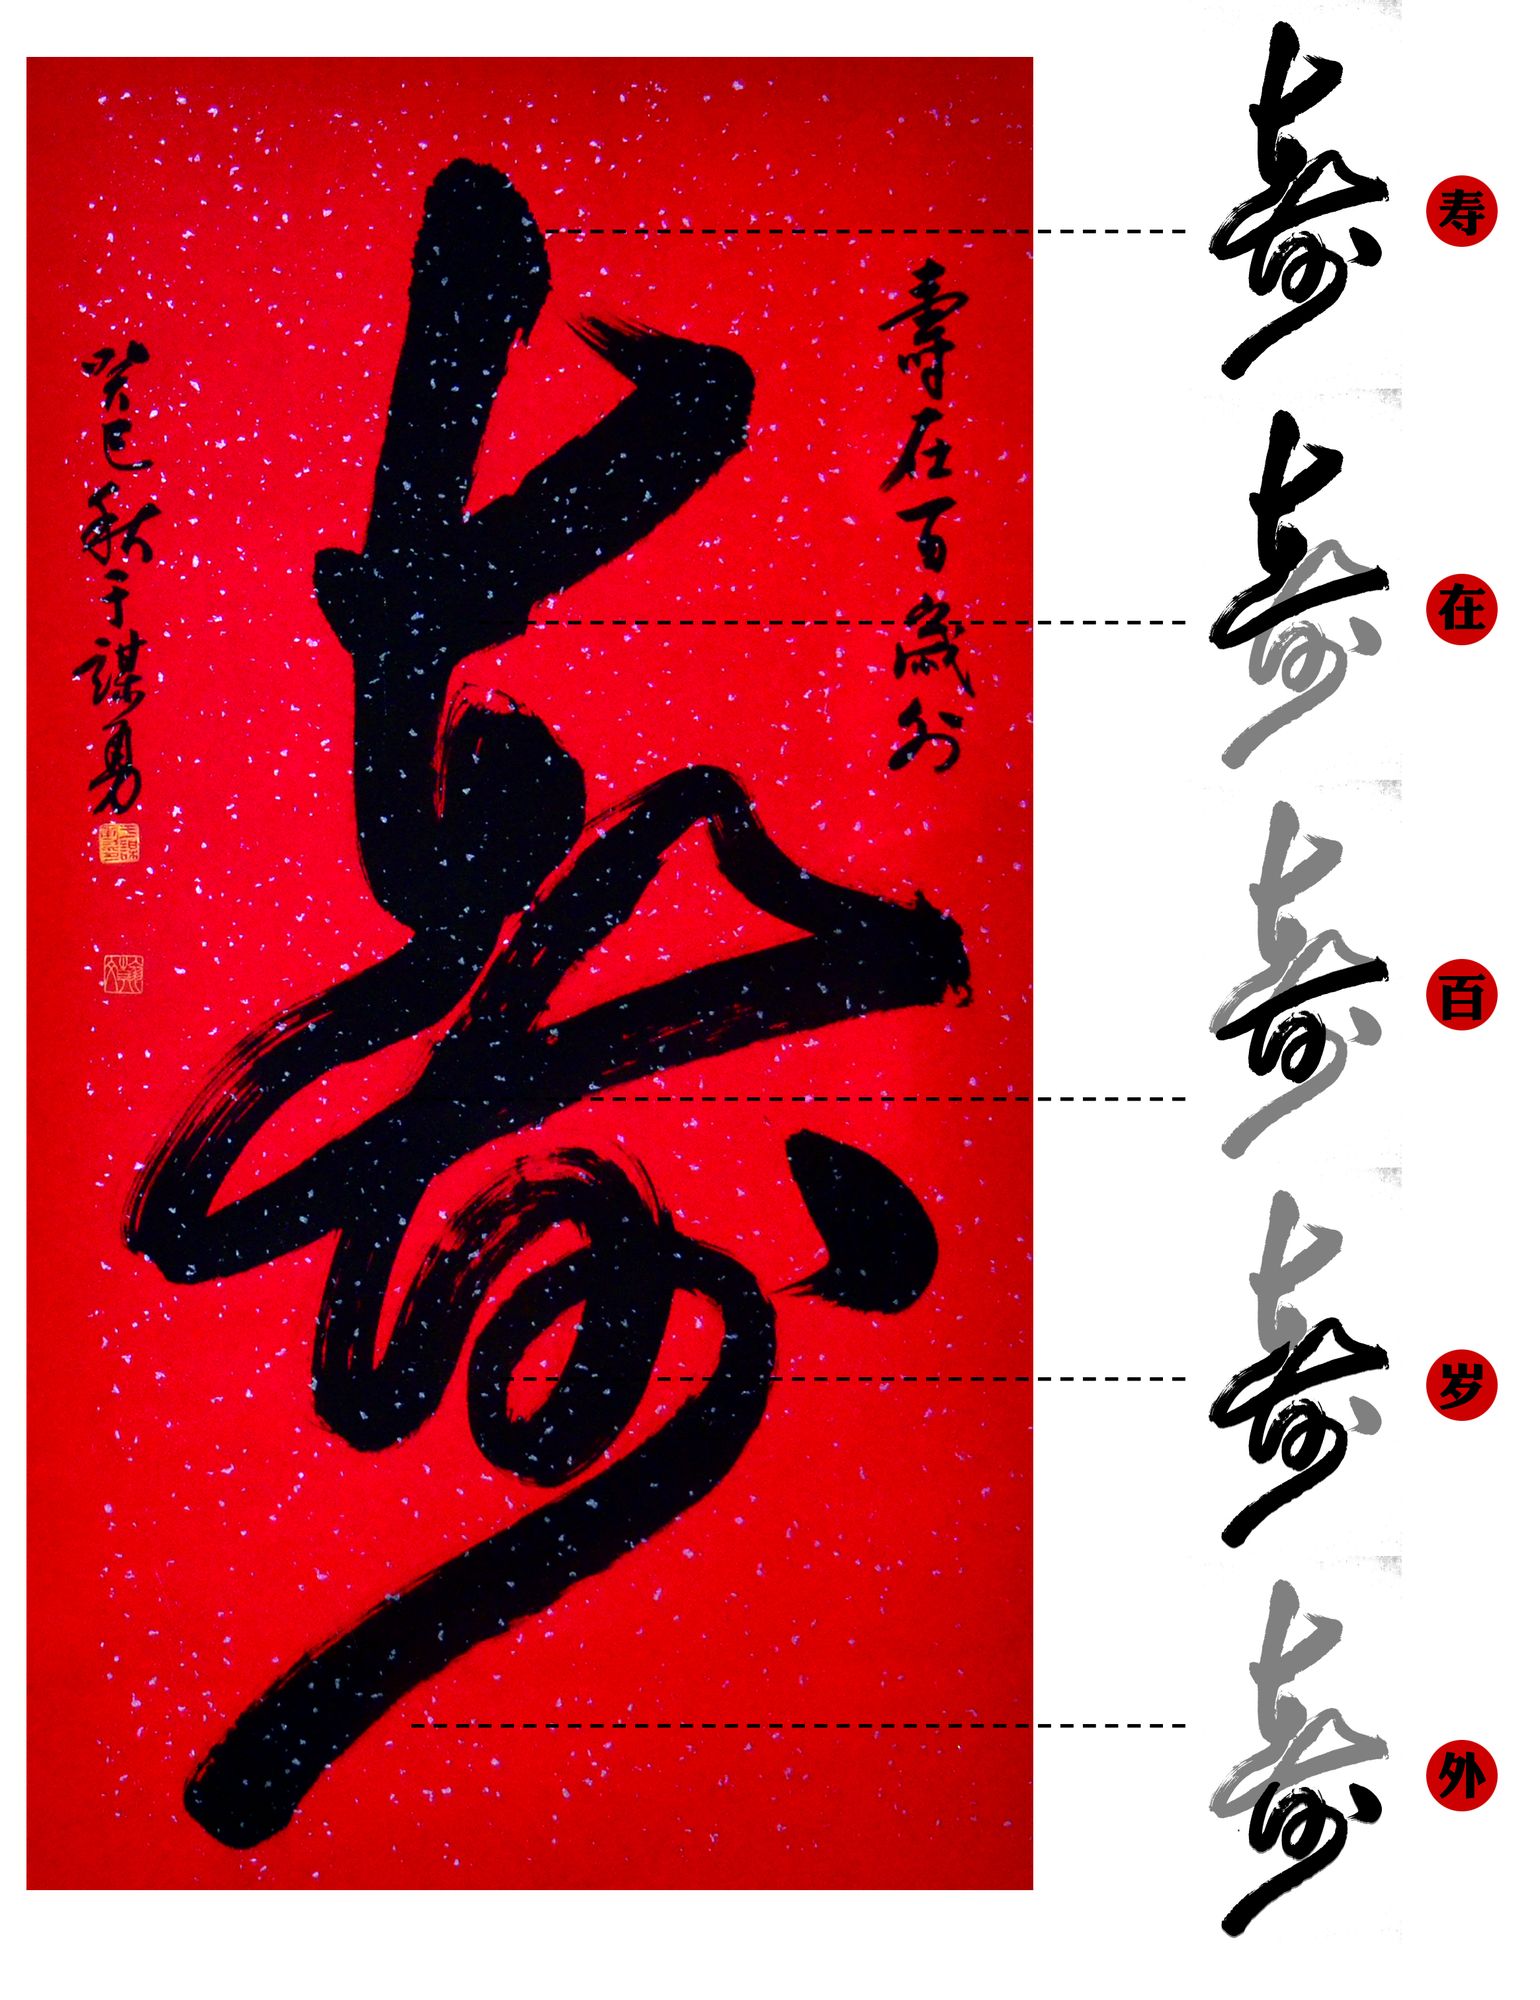 壽在百歲外
壽
癸巳秋于謀勇
寿
在
百
岁
外